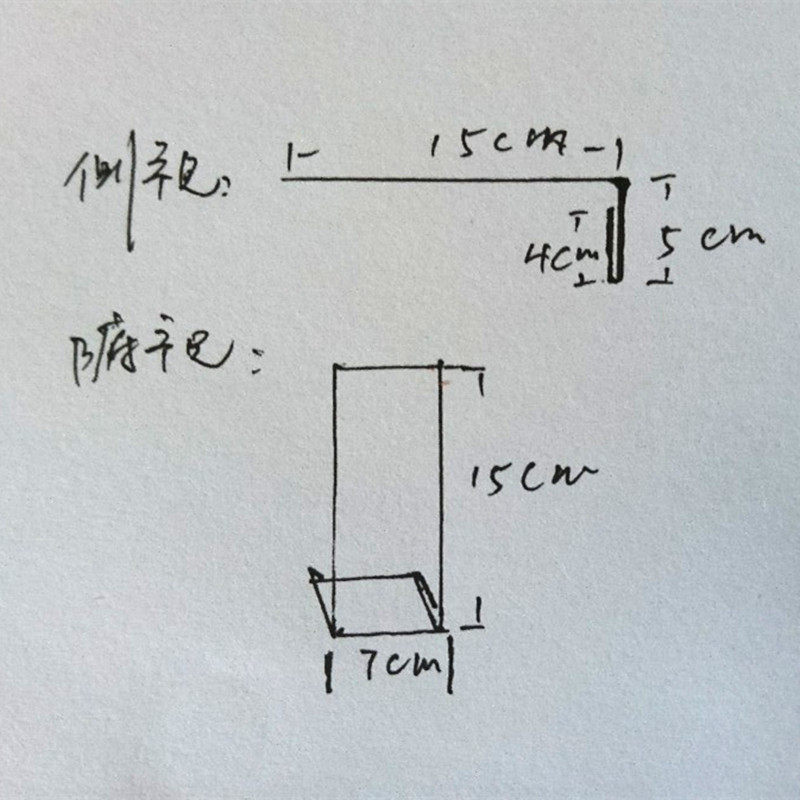 侧视:
15cm
4cm
5cm
俯视:
15cm
7cm